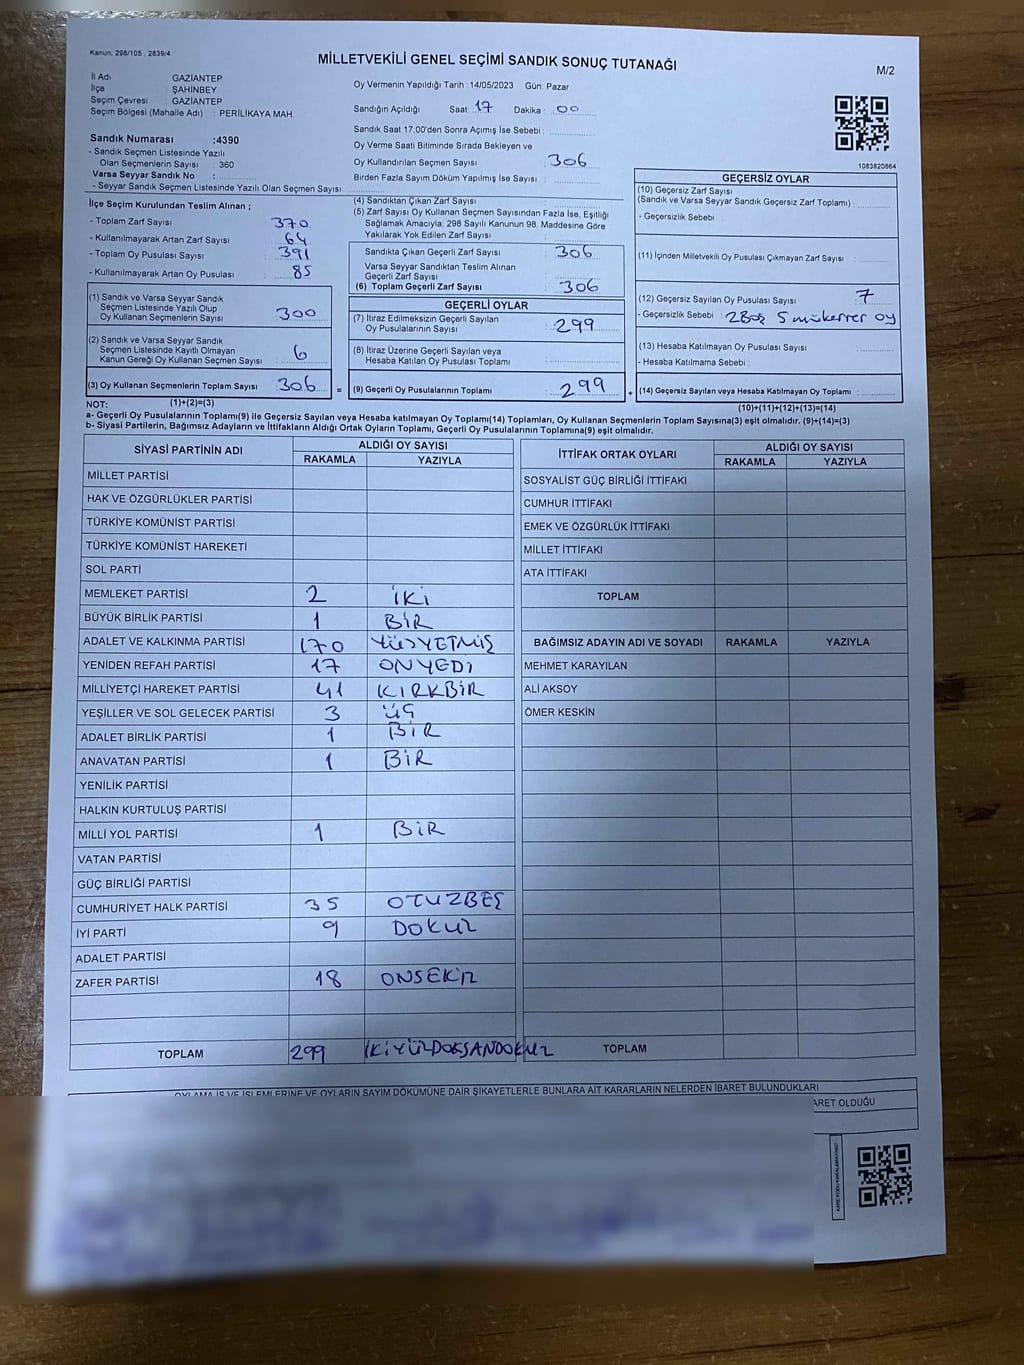 Kanun: 298/105 , 2839/4
MİLLETVEKİLİ GENEL SEÇİMİ SANDIK SONUÇ TUTANAĞI
M/2
İl Adı GAZİANTEP
İlçe ŞAHİNBEY
Seçim Çevresi GAZİANTEP
Seçim Bölgesi (Mahalle Adı) : PERİLİKAYA MAH
Sandık Numarası :4390
- Sandık Seçmen Listesinde Yazılı
Olan Seçmenlerin Sayısı : 360
Varsa Seyyar Sandık No :
- Seyyar Sandık Seçmen Listesinde Yazılı Olan Seçmen Sayısı
Oy Vermenin Yapıldığı Tarih :14/05/2023 Gün: Pazar
Sandığın Açıldığı Saat : 17 Dakika : 00
Sandık Saat 17:00'den Sonra Açımış İse Sebebi :
Oy Verme Saati Bitiminde Sırada Bekleyen ve
Oy Kullandırılan Seçmen Sayısı : 306
Birden Fazla Sayım Döküm Yapılmış İse Sayısı :
1083820864
İlçe Seçim Kurulundan Teslim Alınan ;
- Toplam Zarf Sayısı 370
- Kullanılmayarak Artan Zarf Sayısı 64
- Toplam Oy Pusulası Sayısı 391
- Kullanılmayarak Artan Oy Pusulası 85
(1) Sandık ve Varsa Seyyar Sandık
Seçmen Listesinde Yazılı Olup
Oy Kullanan Seçmenlerin Sayısı : 300
(2) Sandık ve Varsa Seyyar Sandık
Seçmen Listesinde Kayıtlı Olmayan
Kanun Gereği Oy Kullanan Seçmen Sayısı : 6
(3) Oy Kullanan Seçmenlerin Toplam Sayısı : 306 =
(1)+(2)=(3)
(4) Sandıktan Çıkan Zarf Sayısı :
(5) Zarf Sayısı Oy Kullanan Seçmen Sayısından Fazla İse, Eşitliği
Sağlamak Amacıyla; 298 Sayılı Kanunun 98. Maddesine Göre
Yakılarak Yok Edilen Zarf Sayısı
Sandıkta Çıkan Geçerli Zarf Sayısı : 306
Varsa Seyyar Sandıktan Teslim Alınan
Geçerli Zarf Sayısı
(6) Toplam Geçerli Zarf Sayısı : 306
GEÇERLİ OYLAR
(7) İtiraz Edilmeksizin Geçerli Sayılan
Oy Pusulalarının Sayısı : 299
(8) İtiraz Üzerine Geçerli Sayılan veya
Hesaba Katılan Oy Pusulası Toplamı :
(9) Geçerli Oy Pusulalarının Toplamı : 299 +
GEÇERSİZ OYLAR
(10) Geçersiz Zarf Sayısı
(Sandık ve Varsa Seyyar Sandık Geçersiz Zarf Toplamı) :
- Geçersizlik Sebebi :
(11) İçinden Milletvekili Oy Pusulası Çıkmayan Zarf Sayısı :
(12) Geçersiz Sayılan Oy Pusulası Sayısı : 7
- Geçersizlik Sebebi : 2Boş 5 mükerrer oy
(13) Hesaba Katılmayan Oy Pusulası Sayısı :
- Hesaba Katılmama Sebebi :
(14) Geçersiz Sayılan veya Hesaba Katılmayan Oy Toplamı :
(10)+(11)+(12)+(13)=(14)
NOT:
a- Geçerli Oy Pusulalarının Toplamı(9) ile Geçersiz Sayılan veya Hesaba katılmayan Oy Toplamı(14) Toplamları, Oy Kullanan Seçmenlerin Toplam Sayısına(3) eşit olmalıdır. (9)+(14)=(3)
b- Siyasi Partilerin, Bağımsız Adayların ve İttifakların Aldığı Ortak Oyların Toplamı, Geçerli Oy Pusulalarının Toplamına(9) eşit olmalıdır.
SİYASİ PARTİNİN ADI ALDIĞI OY SAYISI
RAKAMLA YAZIYLA
MİLLET PARTİSİ
HAK VE ÖZGÜRLÜKLER PARTİSİ
TÜRKİYE KOMÜNİST PARTİSİ
TÜRKİYE KOMÜNİST HAREKETİ
SOL PARTİ
MEMLEKET PARTİSİ 2 İKİ
BÜYÜK BİRLİK PARTİSİ 1 BİR
ADALET VE KALKINMA PARTİSİ 170 YÜZYETMİŞ
YENİDEN REFAH PARTİSİ 17 ONYEDİ
MİLLİYETÇİ HAREKET PARTİSİ 41 KIRKBİR
YEŞİLLER VE SOL GELECEK PARTİSİ 3 ÜÇ
ADALET BİRLİK PARTİSİ 1 BİR
ANAVATAN PARTİSİ 1 BİR
YENİLİK PARTİSİ
HALKIN KURTULUŞ PARTİSİ
MİLLİ YOL PARTİSİ 1 BİR
VATAN PARTİSİ
GÜÇ BİRLİĞİ PARTİSİ
CUMHURİYET HALK PARTİSİ 35 OTUZBEŞ
İYİ PARTİ 9 DOKUZ
ADALET PARTİSİ
ZAFER PARTİSİ 18 ONSEKİZ
TOPLAM 299 İKİYÜZDOKSANDOKUZ
İTTİFAK ORTAK OYLARI ALDIĞI OY SAYISI
RAKAMLA YAZIYLA
SOSYALİST GÜÇ BİRLİĞİ İTTİFAKI
CUMHUR İTTİFAKI
EMEK VE ÖZGÜRLÜK İTTİFAKI
MİLLET İTTİFAKI
ATA İTTİFAKI
TOPLAM
BAĞIMSIZ ADAYIN ADI VE SOYADI RAKAMLA YAZIYLA
MEHMET KARAYILAN
ALİ AKSOY
ÖMER KESKİN
TOPLAM
OYLAMA İŞ VE İŞLEMLERİNE VE OYLARIN SAYIM DÖKÜMÜNE DAİR ŞİKAYETLERLE BUNLARA AİT KARARLARIN NELERDEN İBARET BULUNDUKLARI
OLDUĞU